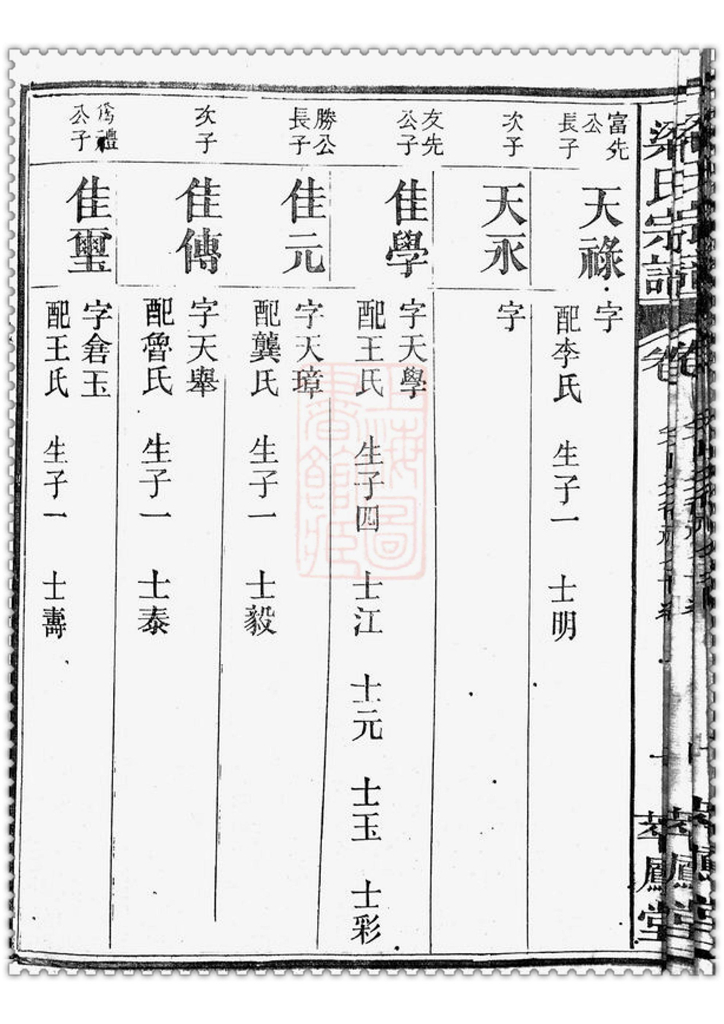 梁氏宗譜
卷
萃鳳堂
富先公長子
天祿
字
配李氏 生子一 士明
次子
天永
字
友先公子
佳學
字天學
配王氏 生子四 士江 士元 士玉 士彩
勝公長子
佳元
字天璋
配龔氏 生子一 士毅
次子
佳傳
字天舉
配魯氏 生子一 士泰
禮公子
佳璽
字倉玉
配王氏 生子一 士壽
上海圖書館藏